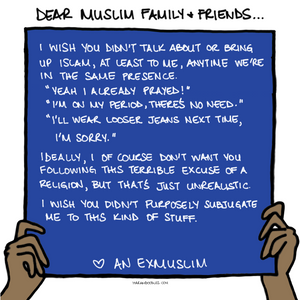 DEAR MUSLIM FAMILY + FRIENDS...
I WISH YOU DIDN'T TALK ABOUT OR BRING
UP ISLAM, AT LEAST TO ME, ANYTIME WE'RE
IN THE SAME PRESENCE.
"YEAH I ALREADY PRAYED!"
"I'M ON MY PERIOD, THERE'S NO NEED."
"I'LL WEAR LOOSER JEANS NEXT TIME,
I'M SORRY."
IDEALLY, I OF COURSE DON'T WANT YOU
FOLLOWING THIS TERRIBLE EXCUSE OF A
RELIGION, BUT THAT'S JUST UNREALISTIC
I WISH YOU DIDN'T PURPOSELY SUBJUGATE
ME TO THIS KIND OF STUFF.
♡ AN EXMUSLIM